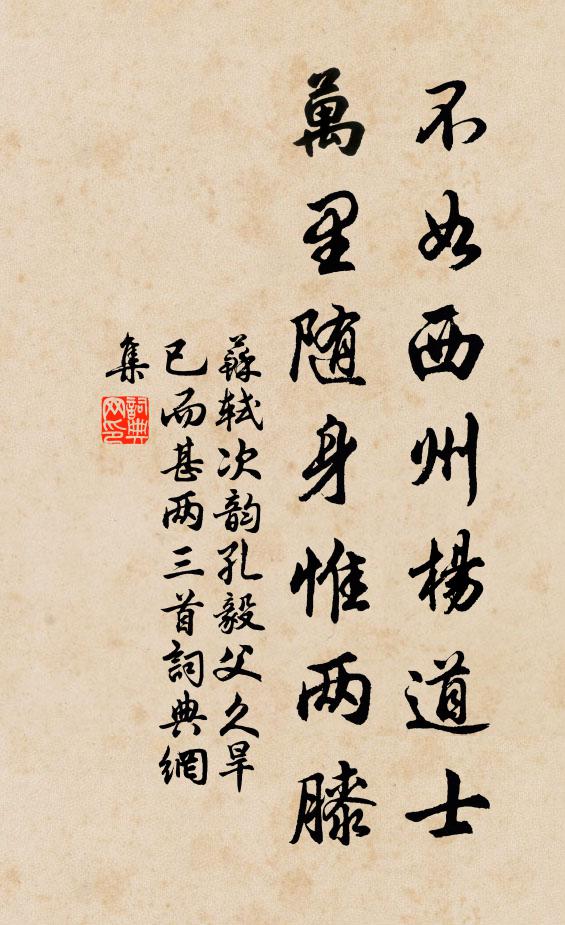 不如西州楊道士
萬里随身惟两膝
蘇軾次韵孔毅父久旱
已而甚两三首詞典網
集
詞典网印